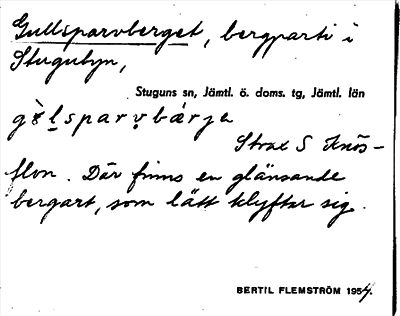 Gullsparvberget, bergparti i
Stugubyn,
Stuguns sn, Jämtl. ö. doms. tg, Jämtl. län
sparvbärje
Strax S Knös-
flon. Där finns en glänsande
bergart, som lätt klyftar sig.
BERTIL FLEMSTRÖM 1954.